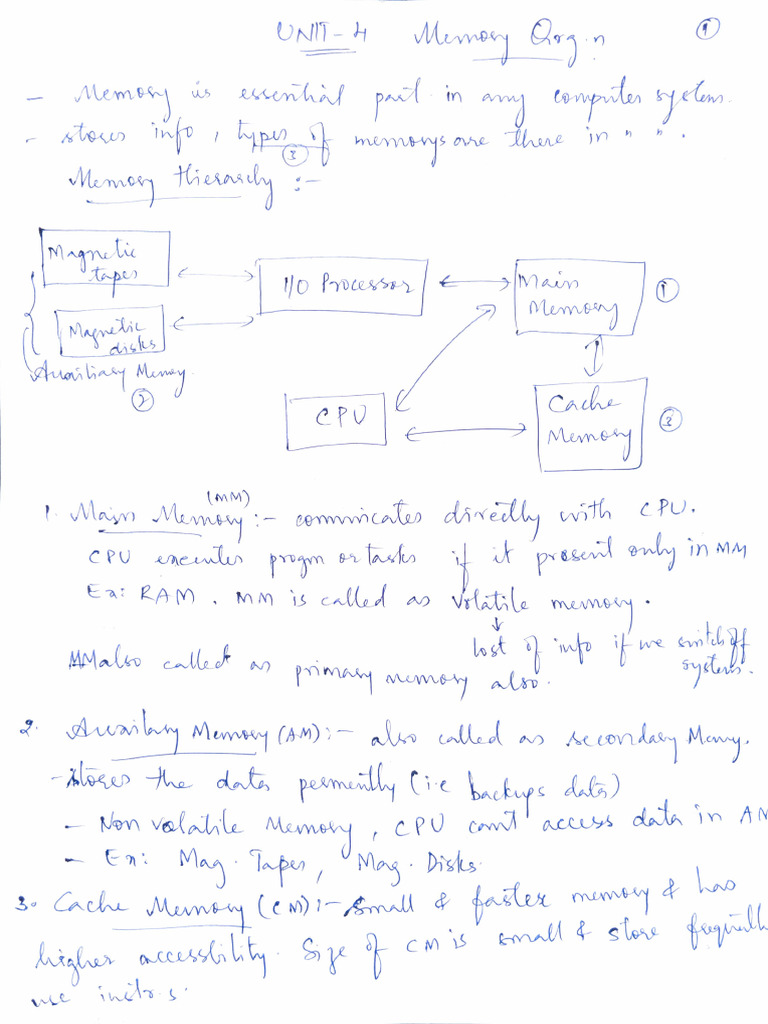 UNIT-4 Memory Org.n 1
- Memory is essential part in any computer system.
- stores info, types of memorys are there in " ".
3
Memory Hierarchy :-
Magnetic
tapes
I/O Processor
Main
Memory
1
Magnetic
disks
Auxiliary Memory
2
CPU
Cache
Memory
3
(MM)
1. Main Memory :- communicates directly with CPU.
CPU executes progm or tasks if it present only in MM
Ex: RAM. MM is called as volatile memory.
lost of info if we switch off
system.
MM also called as primary memory also.
2. Auxilary Memory (AM) :- also called as secondary Memy.
- stores the data permently (i.e backups data)
- Non volatile Memory, CPU can't access data in AM
- Ex: Mag. Tapes, Mag. Disks.
3. Cache Memory (CM) :- small & faster memory & has
higher accessblity. Size of CM is small & store frequently
use instr.s.